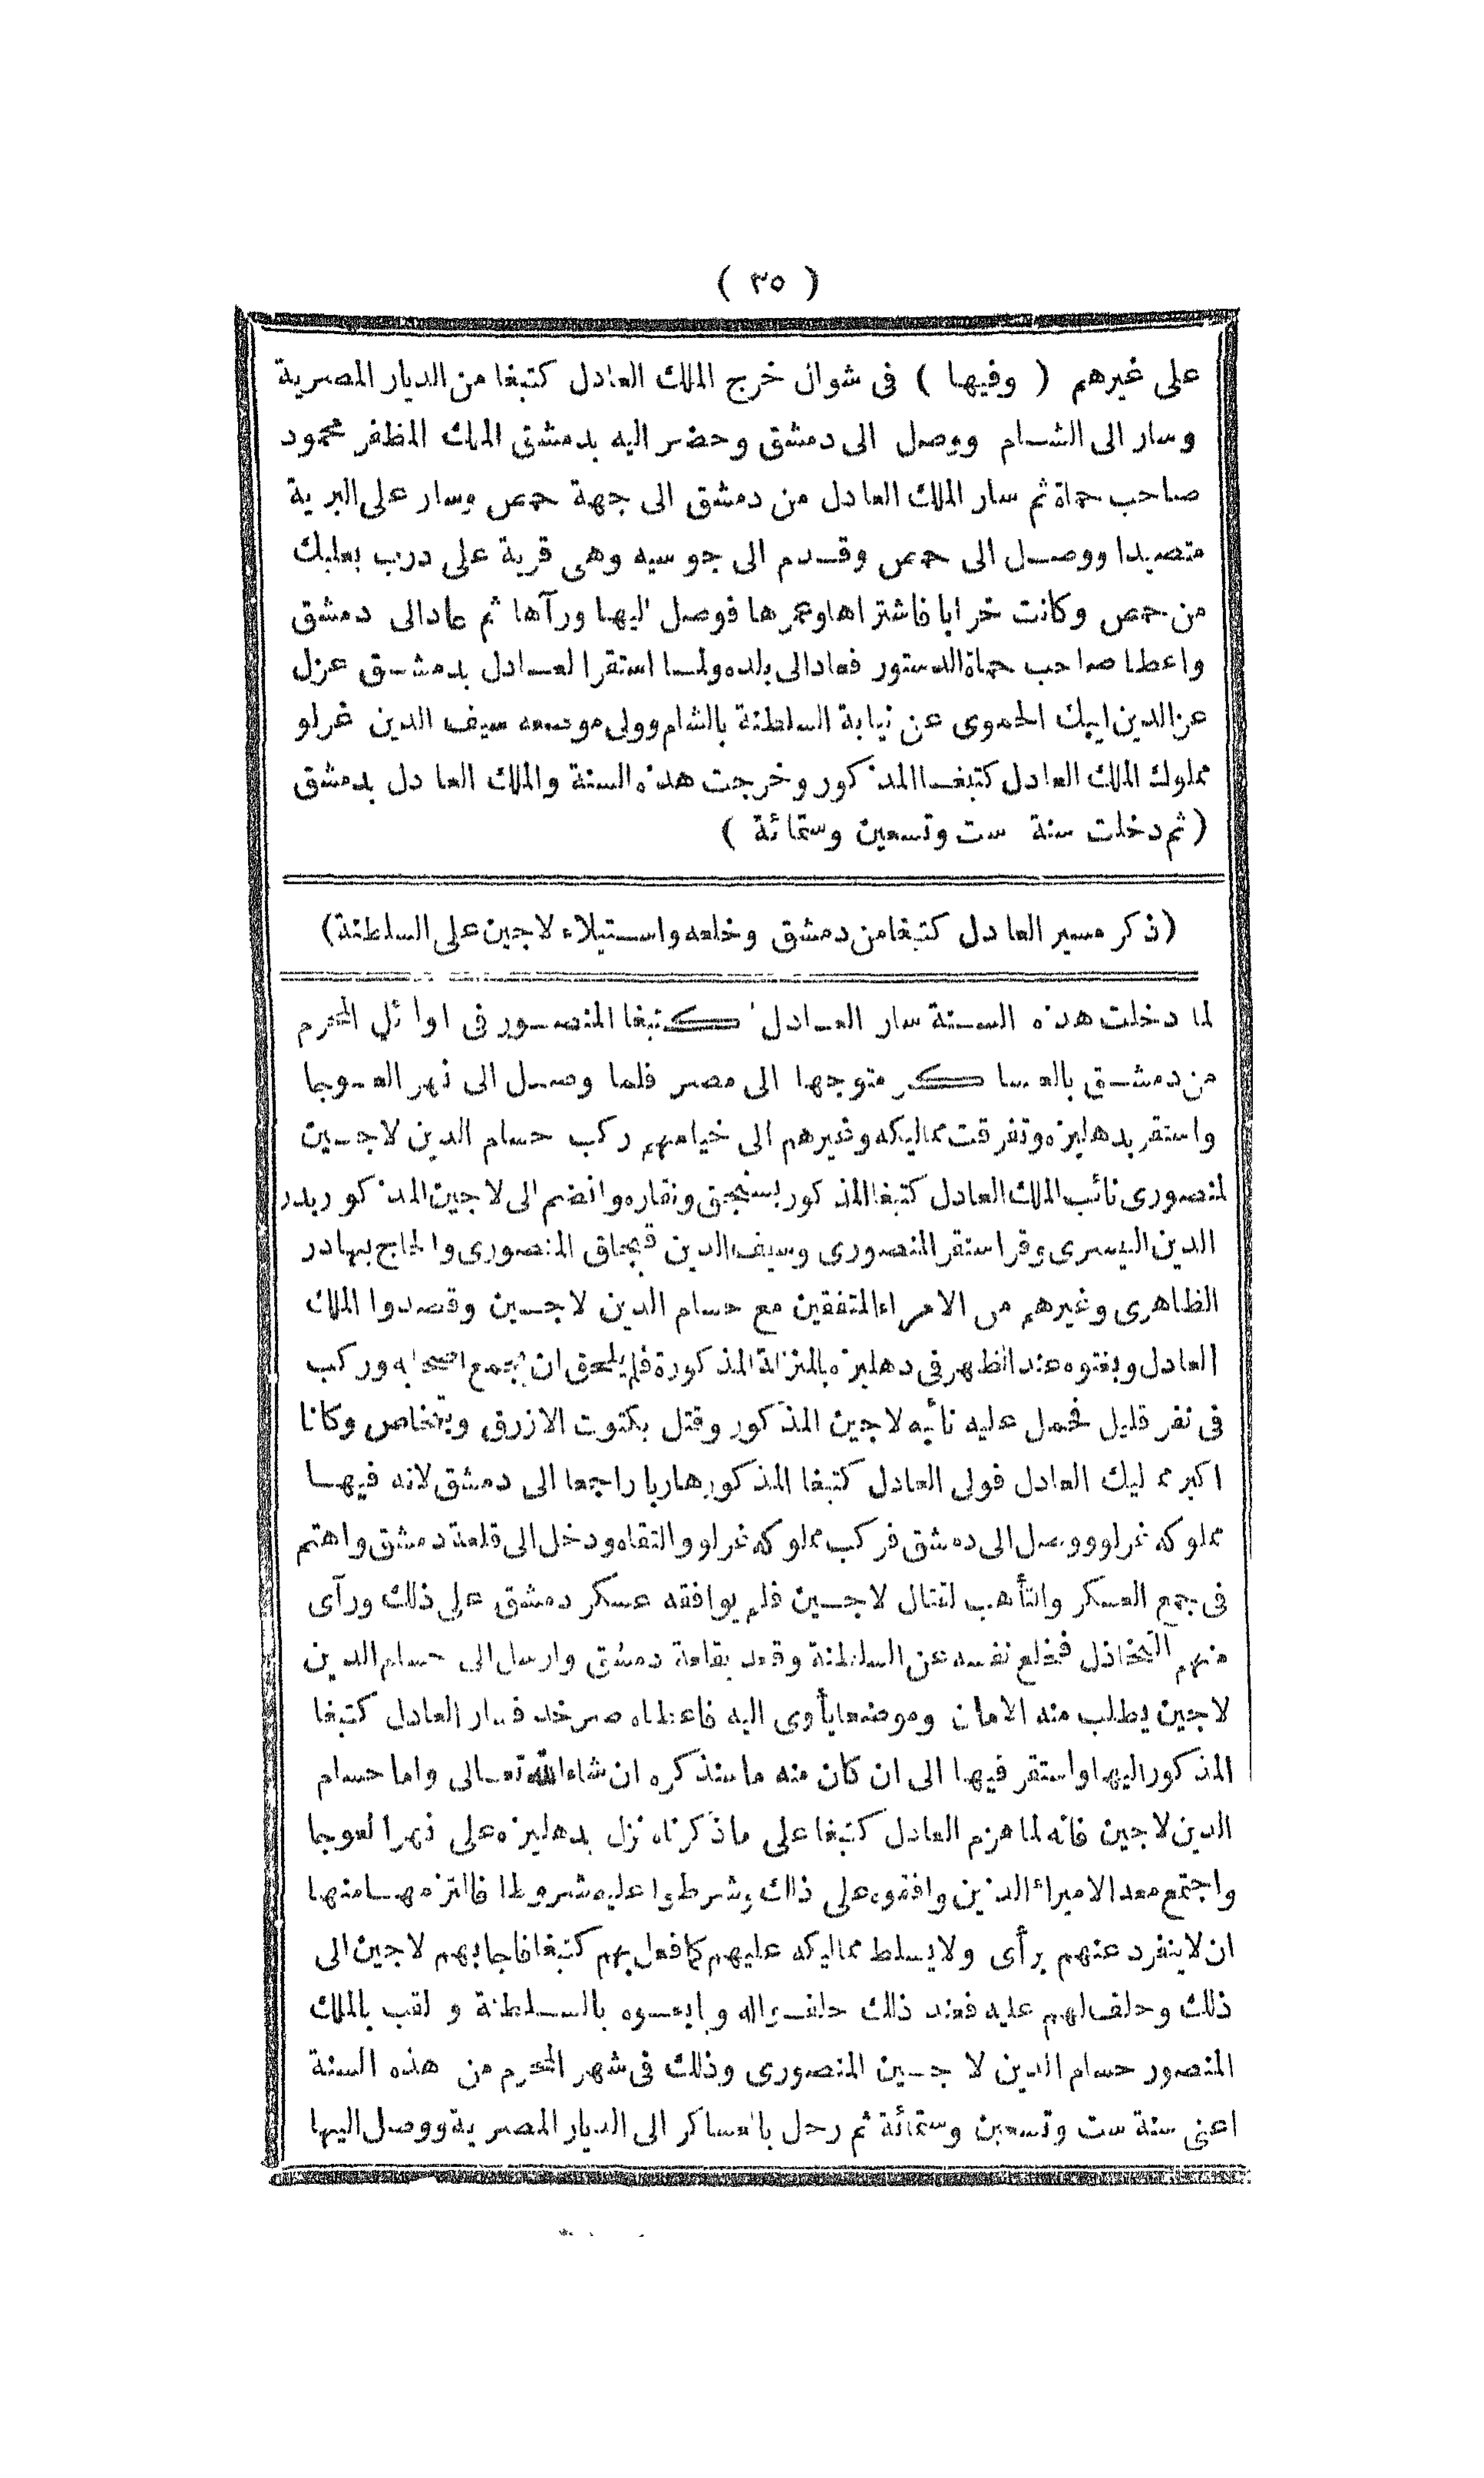 ( ٣٥ )
على غيرهم ( وفيها ) فى شوال خرج الملك العادل كتبغا من الديار المصرية
وسار الى الشام ووصل الى دمشق وحضر اليه بدمشق الملك المظفر محمود
صاحب حماة ثم سار الملك العادل من دمشق الى جهة حمص وسار على البرية
متصيدا ووصل الى حمص وقدم الى جوسيه وهى قرية على درب بعلبك
من حمص وكانت خرابا فاشتراها وعمرها فوصل اليها ورآها ثم عاد الى دمشق
واعطا صاحب حماة الدستور فعاد الى بلده ولما استقر العادل بدمشق عزل
عز الدين ايبك الحموى عن نيابة السلطنة بالشام وولى موضعه سيف الدين غرلو
مملوك الملك العادل كتبغا المذكور وخرجت هذه السنة والملك العادل بدمشق
( ثم دخلت سنة ست وتسعين وستمائة )
(ذكر مسير العادل كتبغا من دمشق وخلعه واستيلاء لاجين على السلطنة)
لما دخلت هذه السنة سار العادل كتبغا المنصور فى اوائل المحرم
من دمشق بالعساكر متوجها الى مصر فلما وصل الى نهر العوجا
واستقر بدهليزه وتفرقت مماليكه وغيرهم الى خيامهم ركب حسام الدين لاجين
لمنصورى نائب الملك العادل كتبغا المذكور بسنجق ونقاره وانضم الى لاجين المذكور بدر
الدين البيسرى وقراسنقر المنصورى وسيف الدين قبجاق المنصورى والحاج بهادر
الظاهرى وغيرهم من الامراء المتفقين مع حسام الدين لاجين وقصدوا الملك
العادل وبغتوه عند الظهر فى دهليزه بالمنزلة المذكورة فلم يلحق ان يجمع اصحابه وركب
فى نفر قليل فحمل عليه نائبه لاجين المذكور وقتل بكتوت الازرق وبتخاص وكانا
اكبر مماليك العادل فولى العادل كتبغا المذكور هاربا راجعا الى دمشق لانه فيها
مملوكه غرلو ووصل الى دمشق فركب مملوكه غرلو والتقاه ودخل الى قلعة دمشق واهتم
فى جمع العسكر والتأهب لقتال لاجين فلم يوافقه عسكر دمشق على ذلك ورآى
منهم التخاذل فخلع نفسه عن السلطنة وقعد بقلعة دمشق وارسل الى حسام الدين
لاجين يطلب منه الامان وموضعا يأوى اليه فاعطاه صرخد فسار العادل كتبغا
المذكور اليها واستقر فيها الى ان كان منه ما سنذكره ان شاء الله تعالى واما حسام
الدين لاجين فانه لما هزم العادل كتبغا على ما ذكرناه نزل بدهليزه على نهر العوجا
واجتمع معه الامراء الذين وافقوه على ذلك وشرطوا عليه شروطا فالتزمها منها
ان لا ينفرد عنهم برأى ولا يسلط مماليكه عليهم كما فعل بهم كتبغا فاجابهم لاجين الى
ذلك وحلف لهم عليه فعند ذلك حلفوا له وبايعوه بالسلطنة و لقب بالملك
المنصور حسام الدين لاجين المنصورى وذلك فى شهر المحرم من هذه السنة
اعنى سنة ست وتسعين وستمائة ثم رحل بالعساكر الى الديار المصرية ووصل اليها